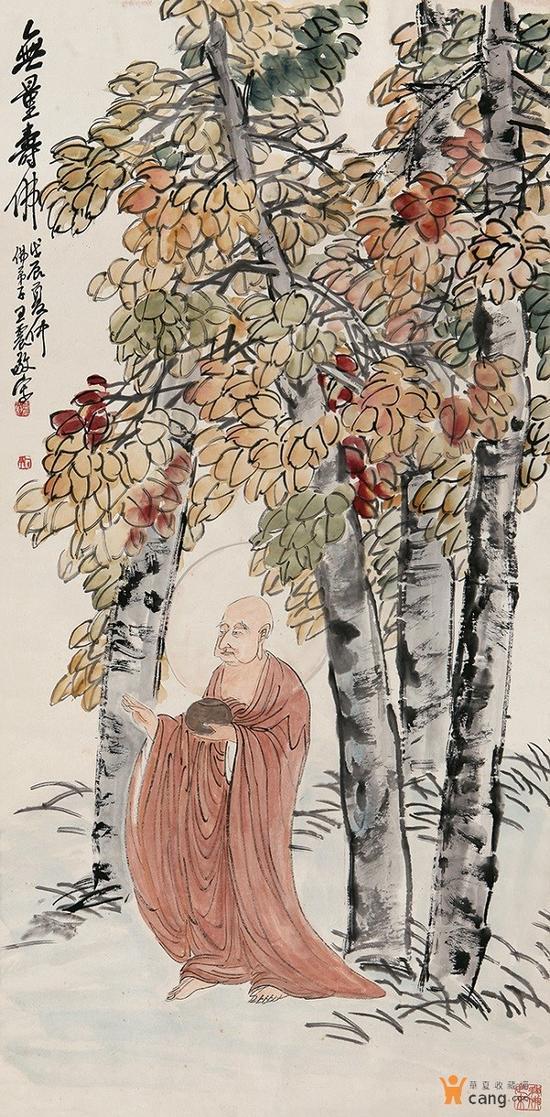 無量壽佛
戊辰夏仲
佛弟子王震敬寫
華夏收藏網
cang.com